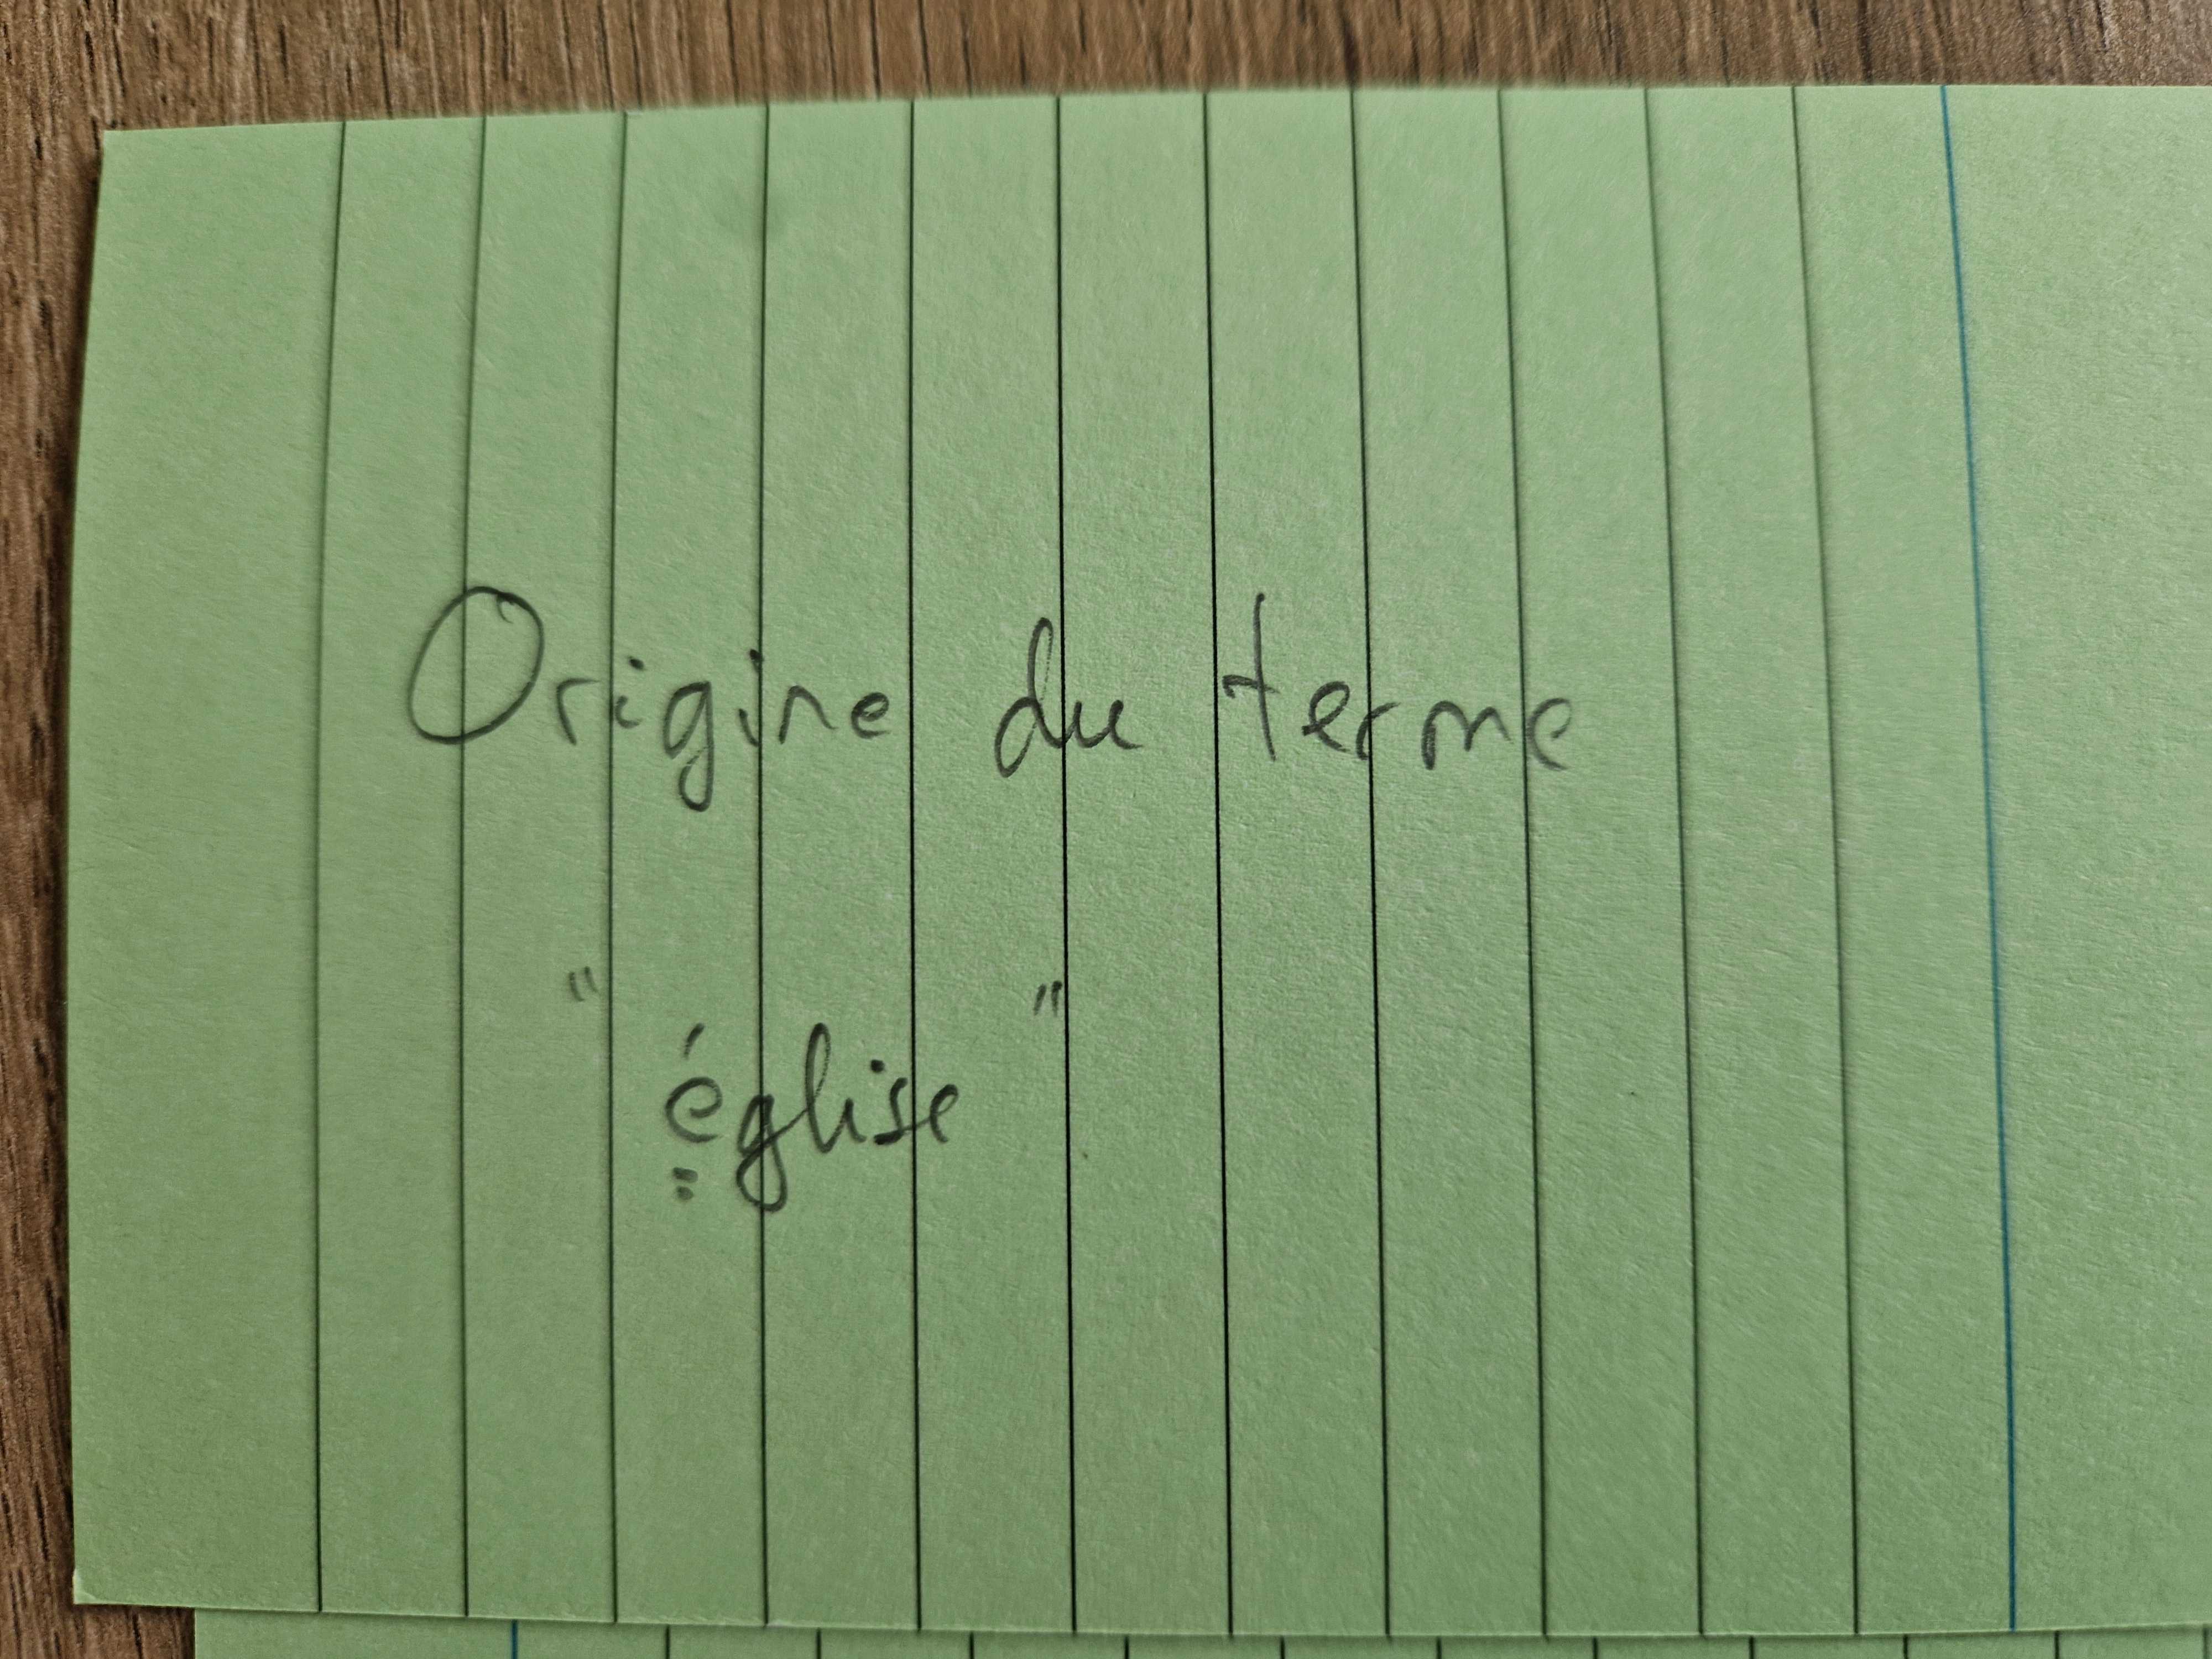 Origine du terme
"église"